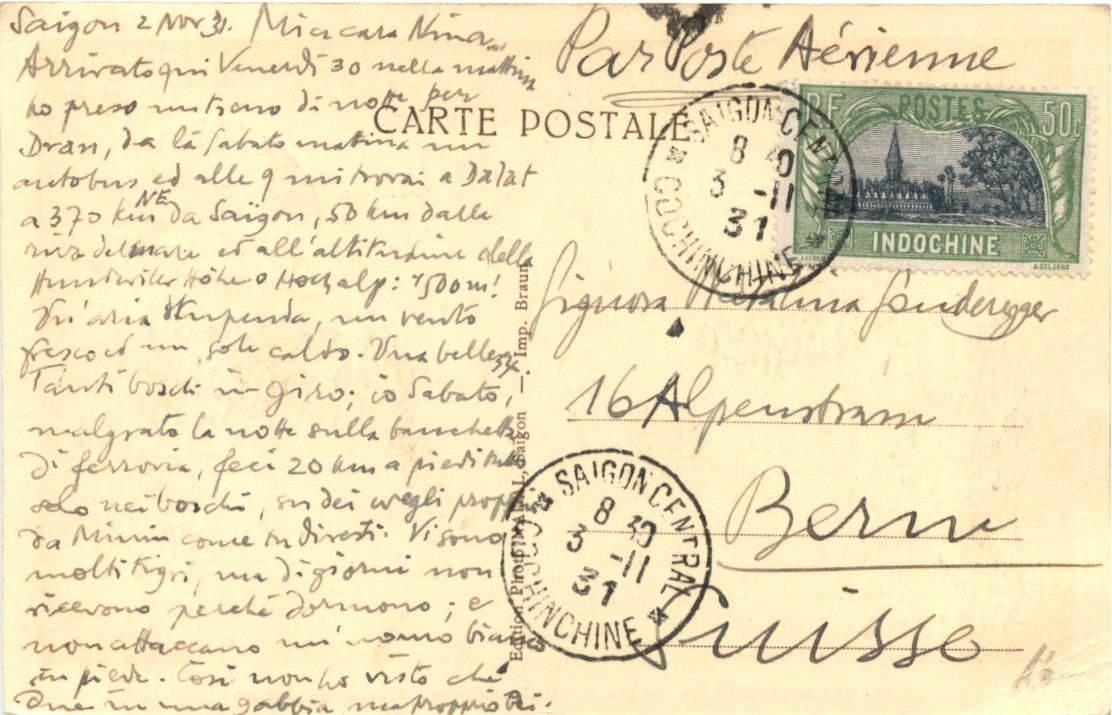 Saigon 2 Nov 31. Mia cara Nina
Arrivato qui Venerdì 30 nella mattina
ho preso un treno di notte per
Dran, da là Sabato matina un
autobus ed alle 9 mi trovai a Dalat
a 370 km NE da Saigon, 50 km dalla
riva del mare ed all'altitudine della
Hundwiler Höhe o Hochalp: 1500 m!
Un'aria stupenda, un vento
fresco ed un sole caldo. Una bellezza
Tanti boschi in giro; io Sabato,
malgrato la notte sulla banchetta
di ferrovia, feci 20 km a piedi tutto
solo nei boschi, su dei proppi
da come tu diresti. Vi sono
molti tigri, ma di giorni non
perché dormono; e
non attaccano un uomo bianco
in piedi. Così non ho visto che
due in una gabbia ma proprio
Par Poste Aérienne
CARTE POSTALE
RF POSTES 50c
INDOCHINE
SAIGON CENTRAL
8 30
3 -11
31
COCHINCHINE
Signora Sonderegger
16 Alpenstrasse
Bern
Suisse
SAIGON CENTRAL
8 30
3 -11
31
COCHINCHINE
Edition Saigon — Imp. Braun